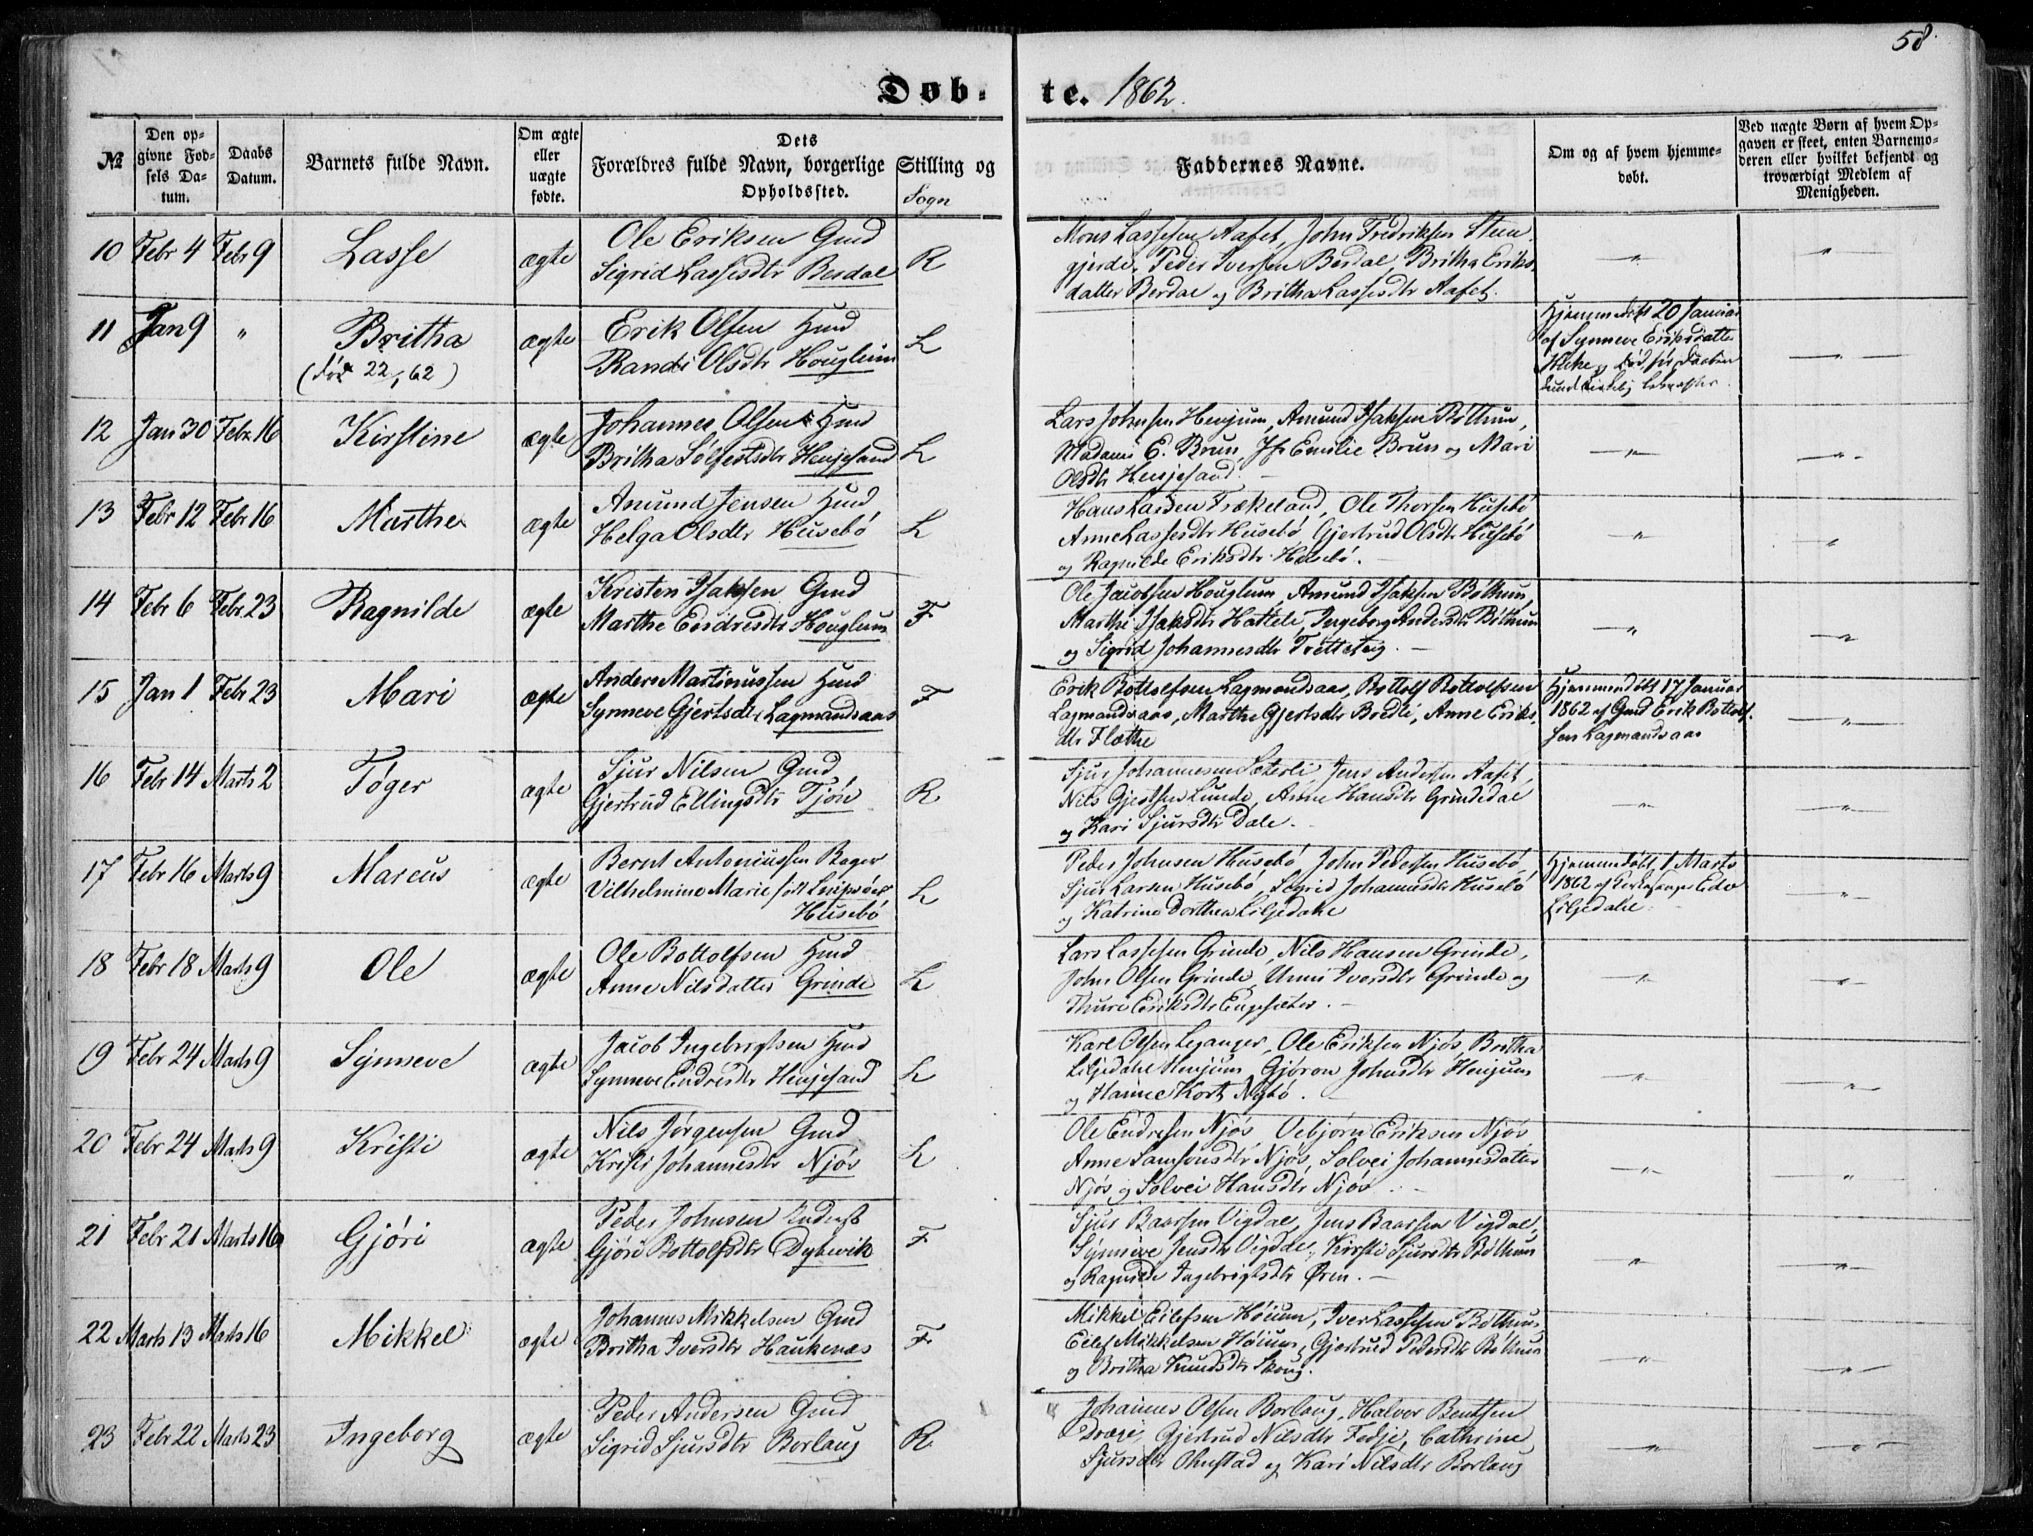 58
Døb- te. 1862.
№
Den opgivne Fødsels Datum.
Daabs Datum.
Barnets fulde Navn.
Om ægte eller uægte fødte.
Dets Forældres fulde Navn, borgerlige Stilling og Opholdssted.
Sogn
Faddernes Navne.
Om og af hvem hjemmedøbt.
Ved uægte Børn af hvem Opgaven er skeet, enten Barnemoderen eller hvilket bekjendt og troværdigt Medlem af Menigheden.
10 Febr 4 Febr 9 Lasse ægte Ole Eriksen Gmd
Sigrid Lassesdtr Berdal R
Mons Lassesen Aafet, John Fredriksen Stein
gjerde, Peder Iversen Berdal, Britha Eriks
datter Berdal og Britha Lassesdtr Aafet.
11 Jan 9 " Britha ægte Erik Olsen Hmd
(død 22/1, 62) Randi Olsdtr Houglum L
Hjemmedøbt 20 Januar
af Synneve Eriksdatter
og død før Daaben
12 Jan 30 Febr. 16 Kirstine ægte Johannes Olsen Hmd
Britha Sølfestsdtr Henjesand L
Lars Johnsen Henjum, Amund Isaksen Bøthun,
Madame E. Brun, Jfr Emilie Brun og Mari
Olsdtr Henjesand.
13 Febr 12 Febr 16 Marthe ægte Amund Jensen Hmd
Helga Olsdtr Husebø L
Hans Larsen Frækeland, Ole Thorsen Husebø
Anne Lassesdtr Husebø, Gjertrud Olsdtr Husebø
og Ragnilde Eriksdtr Husebø.
14 Febr 6 Febr. 23 Ragnilde ægte Kristen Isaksen Gmd
Marthe Endresdtr Houglum F
Ole Jacobsen Houglum, Amund Isaksen Bøthun,
Marthe Isaksdtr Hattele, Ingeborg Andersdtr Bøthun
og Sigrid Johannesdtr Tretteteig.
15 Jan 1 Febr 23 Mari ægte Anders Martinussen Hmd
Synneve Gjertsdtr Lagmandsaas F
Erik Bottolfsen Lagmandsaas, Bottolf Bottolfsen
Lagmandsaas, Marthe Gjertsdtr Bredli, Anne Eriks
dtr Flathe
Hjemmedøbt 17 Januar
1862 af Gmd Erik Bottolf-
sen Lagmandsaas
16 Febr 14 Marts 2 Tøger ægte Sjur Nilsen Gmd
Gjertrud Ellingsdtr Tjøn R
Sjur Johannesen Sæterli, Jens Andersen Aafet,
Nils Gjertsen Lunde, Anne Hansdtr Grindedal
og Kari Sjursdtr Dale.
17 Febr 16 Marts 9 Marcus ægte Bernt Antoniussen Bager
Vilhelmine Marie født
Husebø L
Peder Johnsen Husebø, John Pedersen Husebø,
Sjur Larsen Husebø, Sigrid Johannesdtr Husebø
og Katrine Dorthea Liljedahl
Hjemmedøbt 1 Marts
1862 af Kirkesanger Eder
Liljedahl.
18 Febr 18 Marts 9 Ole ægte Ole Bottolfsen Hmd
Anne Nilsdatter Grinde L
Lars Lassesen Grinde, Nils Hansen Grinde,
John Olsen Grinde, Unni Iversdtr Grinde og
Thuri Eriksdtr Engesæter.
19 Febr 24 Marts 9 Synneve ægte Jacob Ingebrigtsen Hmd
Synneve Endresdtr Henjesand L
Karl Olsen Leganger, Ole Eriksen Njøs, Britha
Liljedahl Henjum, Gjøron Johnsdtr Henjum
og Hanne Kort Nybø.
20 Febr 24 Marts 9 Kristi ægte Nils Jørgensen Gmd
Kristi Johannesdtr Njøs L
Ole Endresen Njøs, Vebjørn Eriksen Njøs
Anne Samsonsdtr Njøs, Solvei Johannesdatter
Njøs og Solvei Hansdtr Njøs.
21 Febr 21 Marts 16 Gjøri ægte Peder Johnsen Inderst
Gjøri Bottolfsdtr Dybevik F
Sjur Baarsen Vigdal, Jens Baarsen Vigdal,
Synneve Jensdtr Vigdal, Kirsti Sjursdtr Bøthun
og Ragnilde Ingebrigtsdtr Øren.
22 Marts 13 Marts 16 Mikkel ægte Johannes Mikkelsen Gmd
Britha Iversdtr Haukenæs F
Mikkel Eilefsen Høium, Iver Lassesen Bøthun,
Eilef Mikkelsen Høium, Gjertrud Pedersdtr Bøthun
og Britha Knudsdtr Skoug.
23 Febr 22 Marts 23 Ingeborg ægte Peder Andersen Gmd
Sigrid Sjursdtr Borlaug R
Johannes Olsen Borlaug, Halvor Bentsen
Drægi, Gjertrud Nilsdtr Fedje, Cathrine
Sjursdtr Ohnstad og Kari Nilsdtr Borlaug